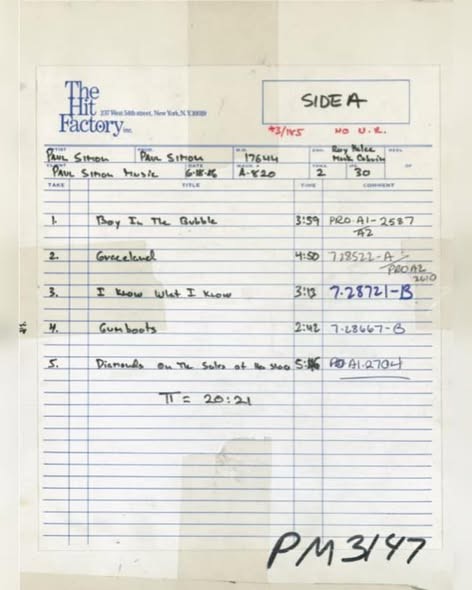 The
Hit
Factory inc.
237 West 54th street, New York, N.Y. 10019
SIDE A
#3/145 NO U.R.
ARTIST PAUL SIMON PAUL SIMON W.O. 17644 ENG. Roy Halee REEL
Mark OF
CLIENT PAUL SIMON MUSIC DATE 6-18-86 A-820 2 IPS 30
TAKE TITLE TIME COMMENT
1. Boy In The Bubble 3:59 PRO-A1-2587
A2
2. Graceland 4:50 7-28522-A / PRO A2
2610
3. I Know What I Know 3:13 7-28721-B
4. Gumboots 2:42 7-28667-B
5. Diamonds On The Soles of Her Shoes 5: A1-2704
TT = 20:21
PM3147